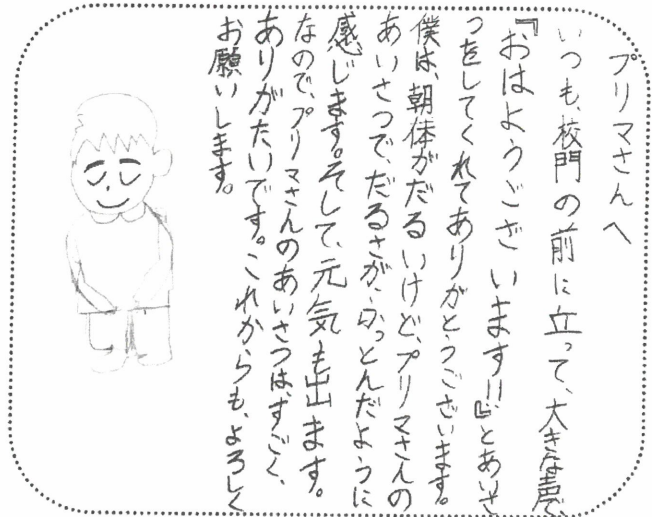 プリマさんへ
いつも、校門の前に立って、大きな声で、
『おはようございます!!』とあいさ
つをしてくれてありがとうございます。
僕は、朝体がだるいけど、プリマさんの
あいさつで、だるさがふっとんだように
感じます。そして、元気も出ます。
なので、プリマさんのあいさつは、すごく、
ありがたいです。これからも、よろしく
お願いします。